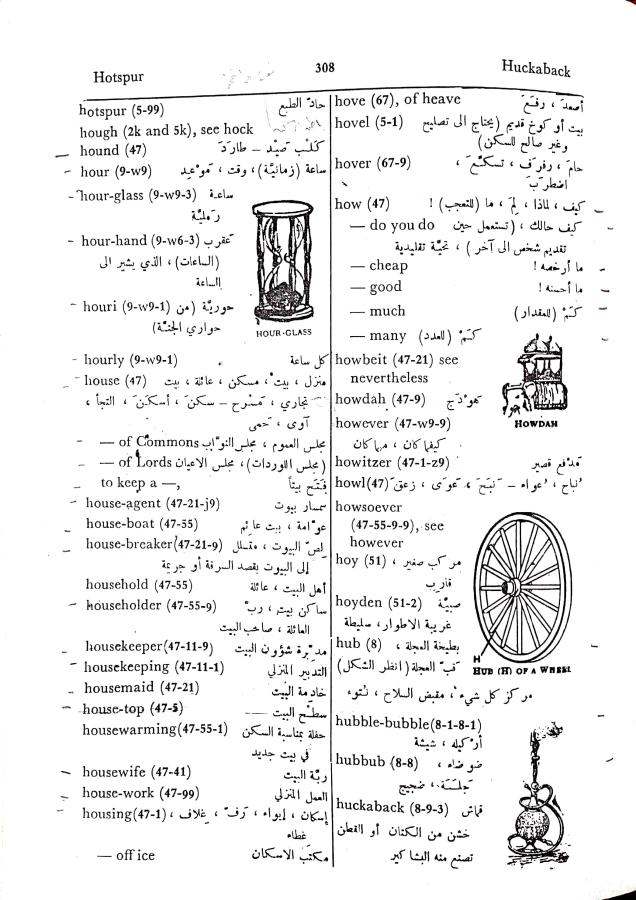 Hotspur
308
Huckaback
hotspur (5-99) حادّ الطبع
hough (2k and 5k), see hock
hound (47) كَلْب صَيْد – طارَدَ
hour (9-w9) ساعة (زمانيّة) ، وقت ، مَوْعِد
hour-glass (9-w9-3) ساعة
رَمليّة
HOUR-GLASS
hour-hand (9-w6-3) عَقرب
(الساعات) ، الذي يشير الى
الساعة
houri (9-w9-1) حوريّة (من
حواري الجنّة)
hourly (9-w9-1) كل ساعة
house (47) منزل ، بيت ، مسكن ، عائلة ، بيت
تجاري ، مَسْرح – سكنَ ، أسكنَ ، التجأ ،
آوى ، حمى
— of Commons مجلس العموم ، مجلس النوّاب
— of Lords (مجلس اللوردات) ، مجلس الاعيان
to keep a —, فَتَح بيتاً
house-agent (47-21-j9) سمسار بيوت
house-boat (47-55) عوّامة ، بيت عائم
house-breaker(47-21-9) لِصّ البيوت ، متسلل
إلى البيوت بقصد السرقة أو جريمة
household (47-55) أهل البيت ، عائلة
householder (47-55-9) ساكن بيت ، ربّ
العائلة ، صاحب البيت
housekeeper(47-11-9) مديرة شؤون البيت
housekeeping (47-11-1) التدبير المنزلي
housemaid (47-21) خادمة البيت
house-top (47-5) سطح البيت
housewarming(47-55-1) حفلة بمناسبة السكن
في بيت جديد
housewife (47-41) ربّة البيت
house-work (47-99) العمل المنزلي
housing(47-1) إسكان ، إيواء ، رَفّ ، غِلاف ،
غطاء
— office مكتب الاسكان
hove (67), of heave أصعدَ ، رفعَ
hovel (5-1) بيت أو كوخ قديم (يحتاج الى تصليح
وغير صالح للسكن)
hover (67-9) حامَ ، رفرفَ ، تسكّعَ ،
اضطربَ
how (47) كيف ، لماذا ، لِمَ ، ما (للتعجب) !
— do you do كيف حالك ، (تستعمل حين
تقديم شخص الى آخر) ، تحيّة تقليدية
— cheap ما أرخصه !
— good ما أحسنه !
— much كَمْ (للمقدار)
— many كَمْ (للعدد)
howbeit (47-21) see
nevertheless
howdah (47-9) هَوْدَج
HOWDAH
however (47-w9-9)
كيفما كان ، مهما كان
howitzer (47-1-z9) مَدْفع قصير
howl(47) نُباح ، عُواء – نَبَحَ ، عَوَى ، زعق
howsoever
(47-55-9-9), see
however
hoy (51) مركب صغير ،
قارب
hoyden (51-2) صبيّة
غريبة الاطوار ، سليطة
hub (8) بطيخة العجلة ،
قبّ العجلة (انظر الشكل)
H
HUB (H) OF A WHEEL
مركز كل شيء ، مقبض السلاح ، نتوء
hubble-bubble(8-1-8-1)
أركيله ، شيشة
hubbub (8-8) ضوضاء ،
جَلَبَة ، ضجيج
huckaback (8-9-3) قماش
خشن من الكتان أو القطن
تصنع منه البشاكير